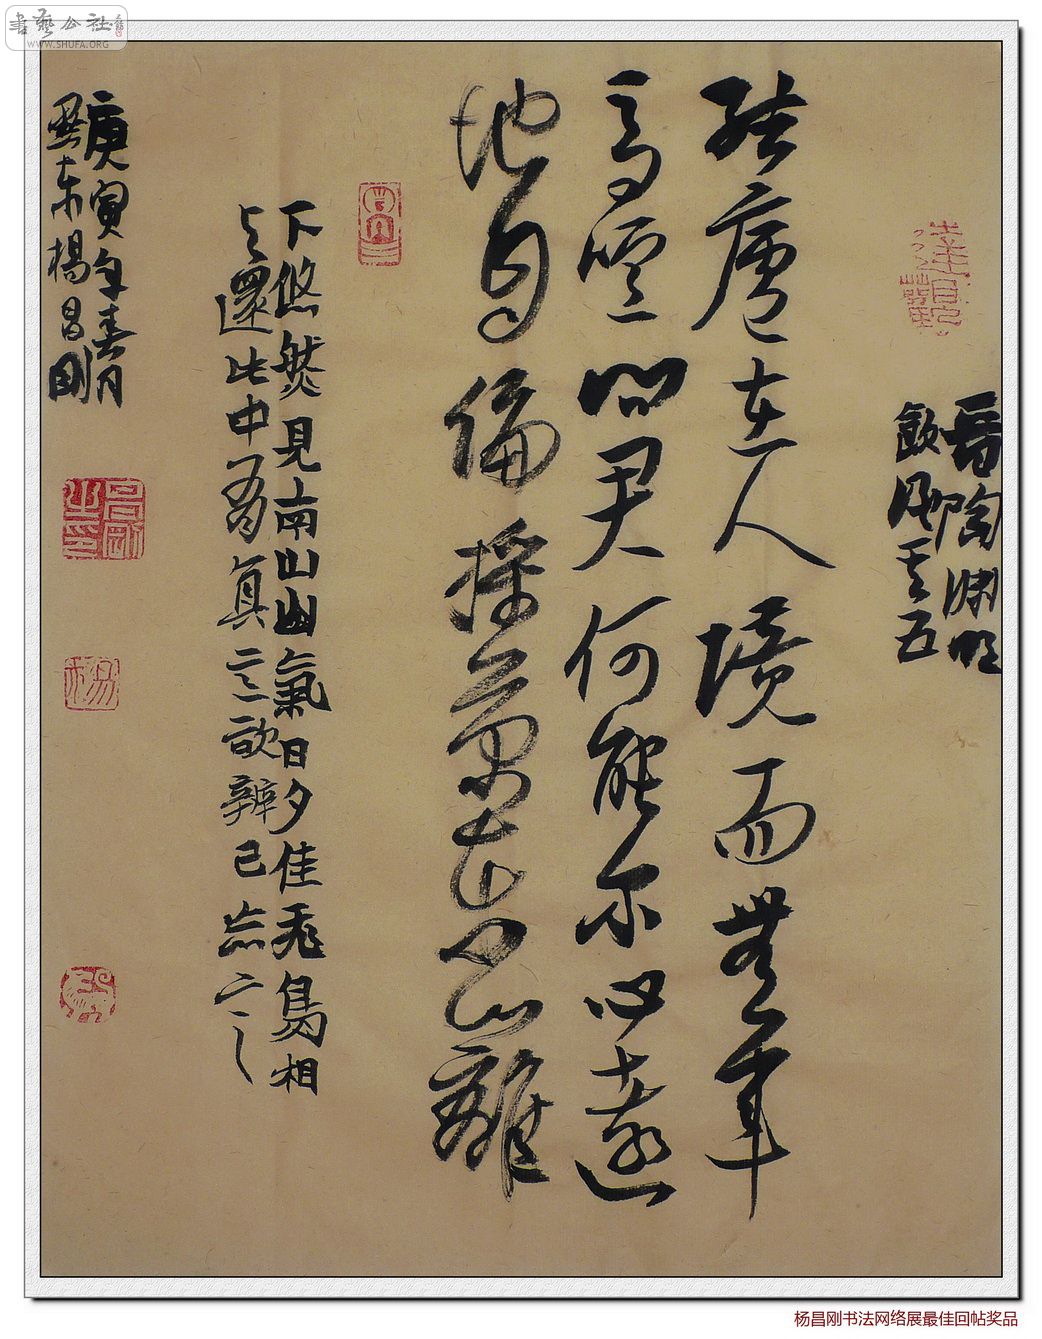 書藝公社
WWW.SHUFA.ORG
晋陶渊明
飲酒其五
結廬在人境而無車
馬喧問君何能尔心遠
地自偏採菊東籬
下悠然見南山山氣日夕佳飛鳥相
与還此中有真意欲辨已忘言
庚寅年春月
黔东楊昌剛
昌剛之印
杨昌刚书法网络展最佳回帖奖品